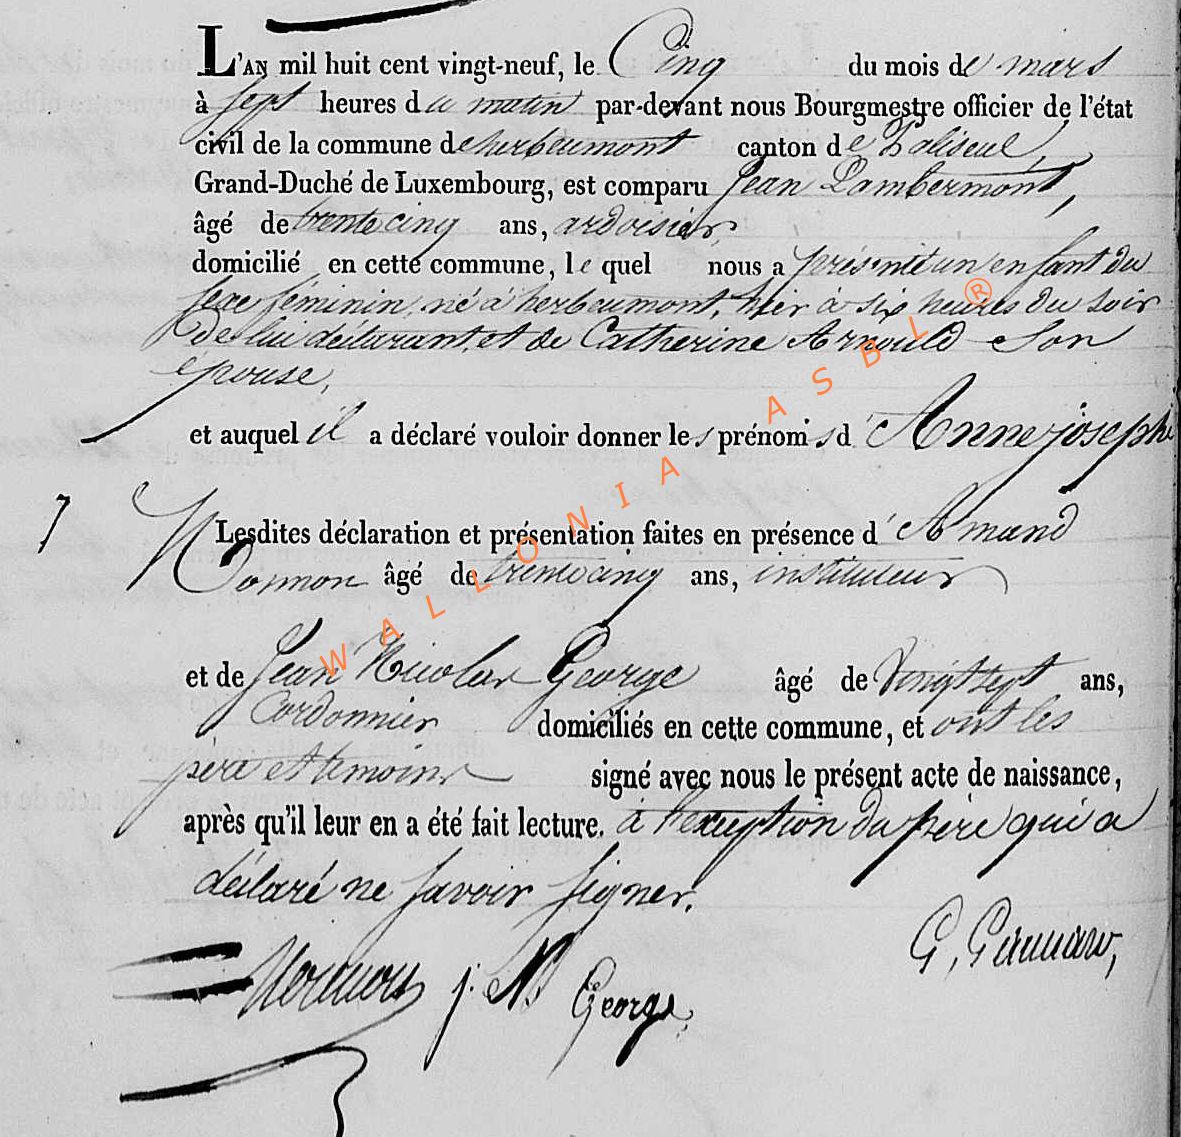 L'AN mil huit cent vingt-neuf, le Cinq du mois de mars
à sept heures du matin par-devant nous Bourgmestre officier de l'état
civil de la commune de herbeumont canton de Paliseul,
Grand-Duché de Luxembourg, est comparu Jean Lambermont,
âgé de trente cinq ans, ardoisier,
domicilié en cette commune, le quel nous a présenté un enfant du
sexe féminin, né à herbeumont, hier à six heures du soir
de lui déclarant, et de Catherine Arnould son
épouse,
et auquel il a déclaré vouloir donner les prénoms d'Anne josephe
Lesdites déclaration et présentation faites en présence d'Amand
âgé de trente cinq ans, instituteur
et de Jean Nicolas George âgé de vingt sept ans,
Cordonnier domiciliés en cette commune, et ont les
père et témoins signé avec nous le présent acte de naissance,
après qu'il leur en a été fait lecture. à l'exception du père qui a
déclaré ne savoir signer.
j. N George
WALLONIA ASBL ®